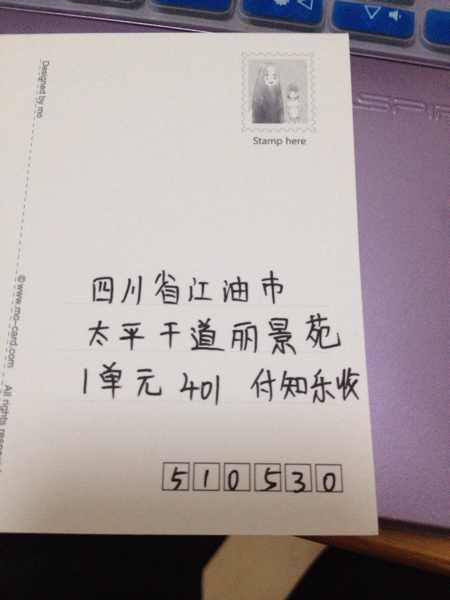 Stamp here
四川省江油市
太平干道丽景苑
1单元 401 付知乐收
510530
Designed by mo
©www.mo-card.com All rights
SPIR